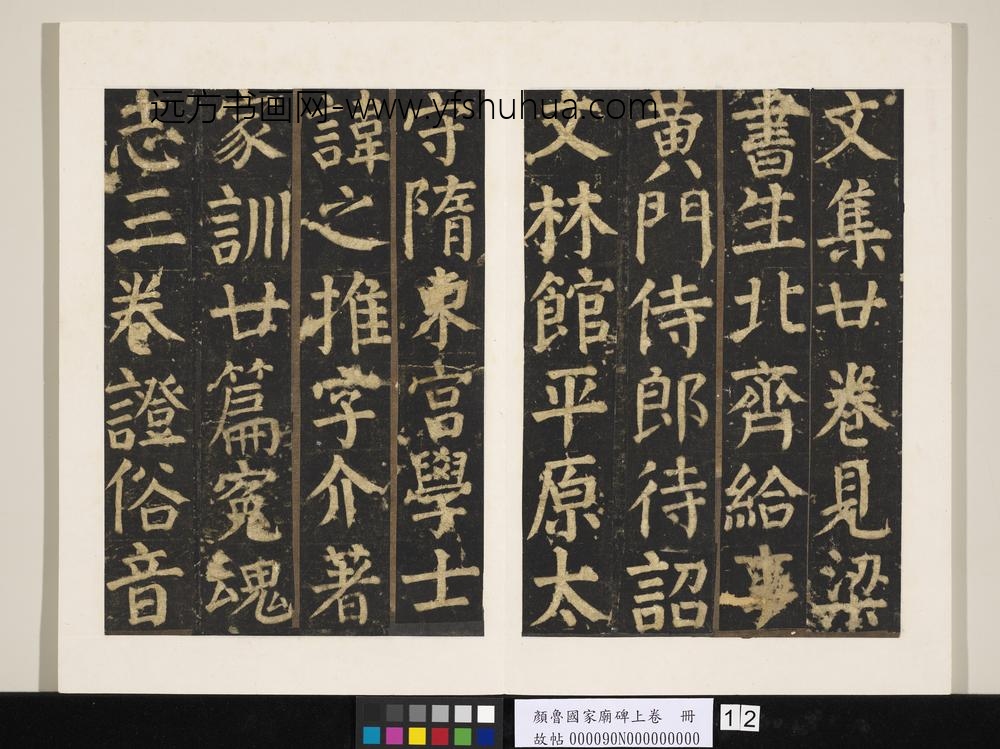 文集廿卷見梁
書生北齊給事
黃門侍郎待詔
文林館平原太
守隋東宮學士
諱之推字介著
家訓廿篇寃魂
志三卷證俗音
远方书画网-www.yfshuhua.com
顏魯國家廟碑上卷 冊
故帖 000090N000000000
12